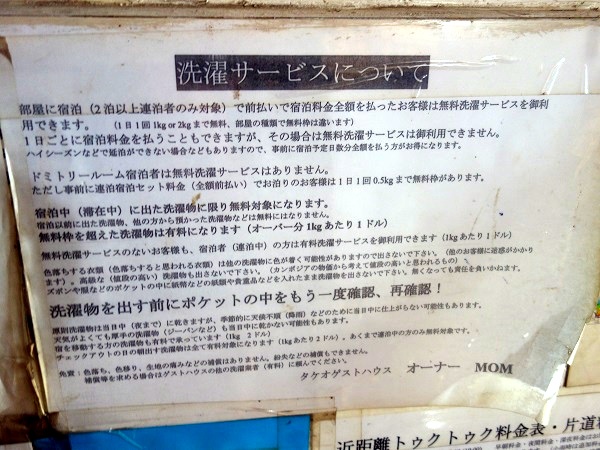 洗濯サービスについて
部屋に宿泊（2泊以上連泊者のみ対象）で前払いで宿泊料金全額を払ったお客様は無料洗濯サービスを御利
用できます。（1日1回 1kg or 2kg まで無料、部屋の種類で無料枠は違います）
1日ごとに宿泊料金を払うこともできますが、その場合は無料洗濯サービスは御利用できません。
ハイシーズンなどで延泊ができない場合などもありますので、事前に宿泊予定日数分全額を払う方がお得になります。
ドミトリールーム宿泊者は無料洗濯サービスはありません。
ただし事前に連泊宿泊セット料金（全額前払い）でお泊りのお客様は1日1回 0.5kg まで無料枠があります。
宿泊中（滞在中）に出た洗濯物に限り無料対象になります。
宿泊以前に出た洗濯物、他の方から預かった洗濯物などは無料にはなりません。
無料枠を超えた洗濯物は有料になります（オーバー分 1kg あたり 1ドル）
無料洗濯サービスのないお客様も、宿泊者（連泊中）の方は有料洗濯サービスを御利用できます（1kg あたり 1ドル）
色落ちする衣類（色落ちすると思われる衣類）は他の洗濯物に色が着く可能性がありますので出さないで下さい。（他のお客様に迷惑がかかり
ます）。高級な（値段の高い）洗濯物も出さないで下さい。（カンボジアの物価から考えて値段の高いと思われるもの）
ズボンや服などのポケットの中に紙幣などの紙類や貴重品などを入れたまま洗濯物を出さないで下さい。無くなっても責任を負いかねます。
洗濯物を出す前にポケットの中をもう一度確認、再確認！
原則洗濯物は当日中（夜まで）に乾きますが、季節的に天候不順（降雨）などのために当日中に仕上がらない可能性もあります。
天気がよくても厚手の洗濯物（ジーパンなど）も当日中に乾かない可能性もあります。
宿を移動する方の洗濯物も有料で承っています（1kg 2ドル）
チェックアウトの日の朝出す洗濯物は全て有料対象になります（1kg あたり2ドル）。あくまで連泊中の方のみ無料対象です。
免責：色落ち、色移り、生地の痛みなどの補償はありません。紛失などの補償もできません。
補償等を求める場合はゲストハウスの他の洗濯業者（有料）に頼んでください。
タケオゲストハウス オーナー MOM
近距離トゥクトゥク料金表・片道